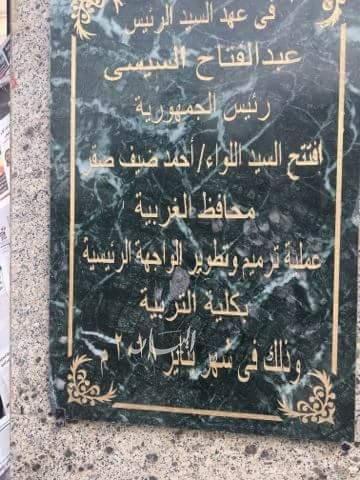 فى عهد السيد الرئيس
عبدالفتاح السيسى
رئيس الجمهورية
افتتح السيد اللواء/ أحمد ضيف صقر
محافظ الغربية
عملية ترميم وتطوير الواجهة الرئيسية
بكلية التربية
وذلك فى شهر يناير ٢٠١٨ م